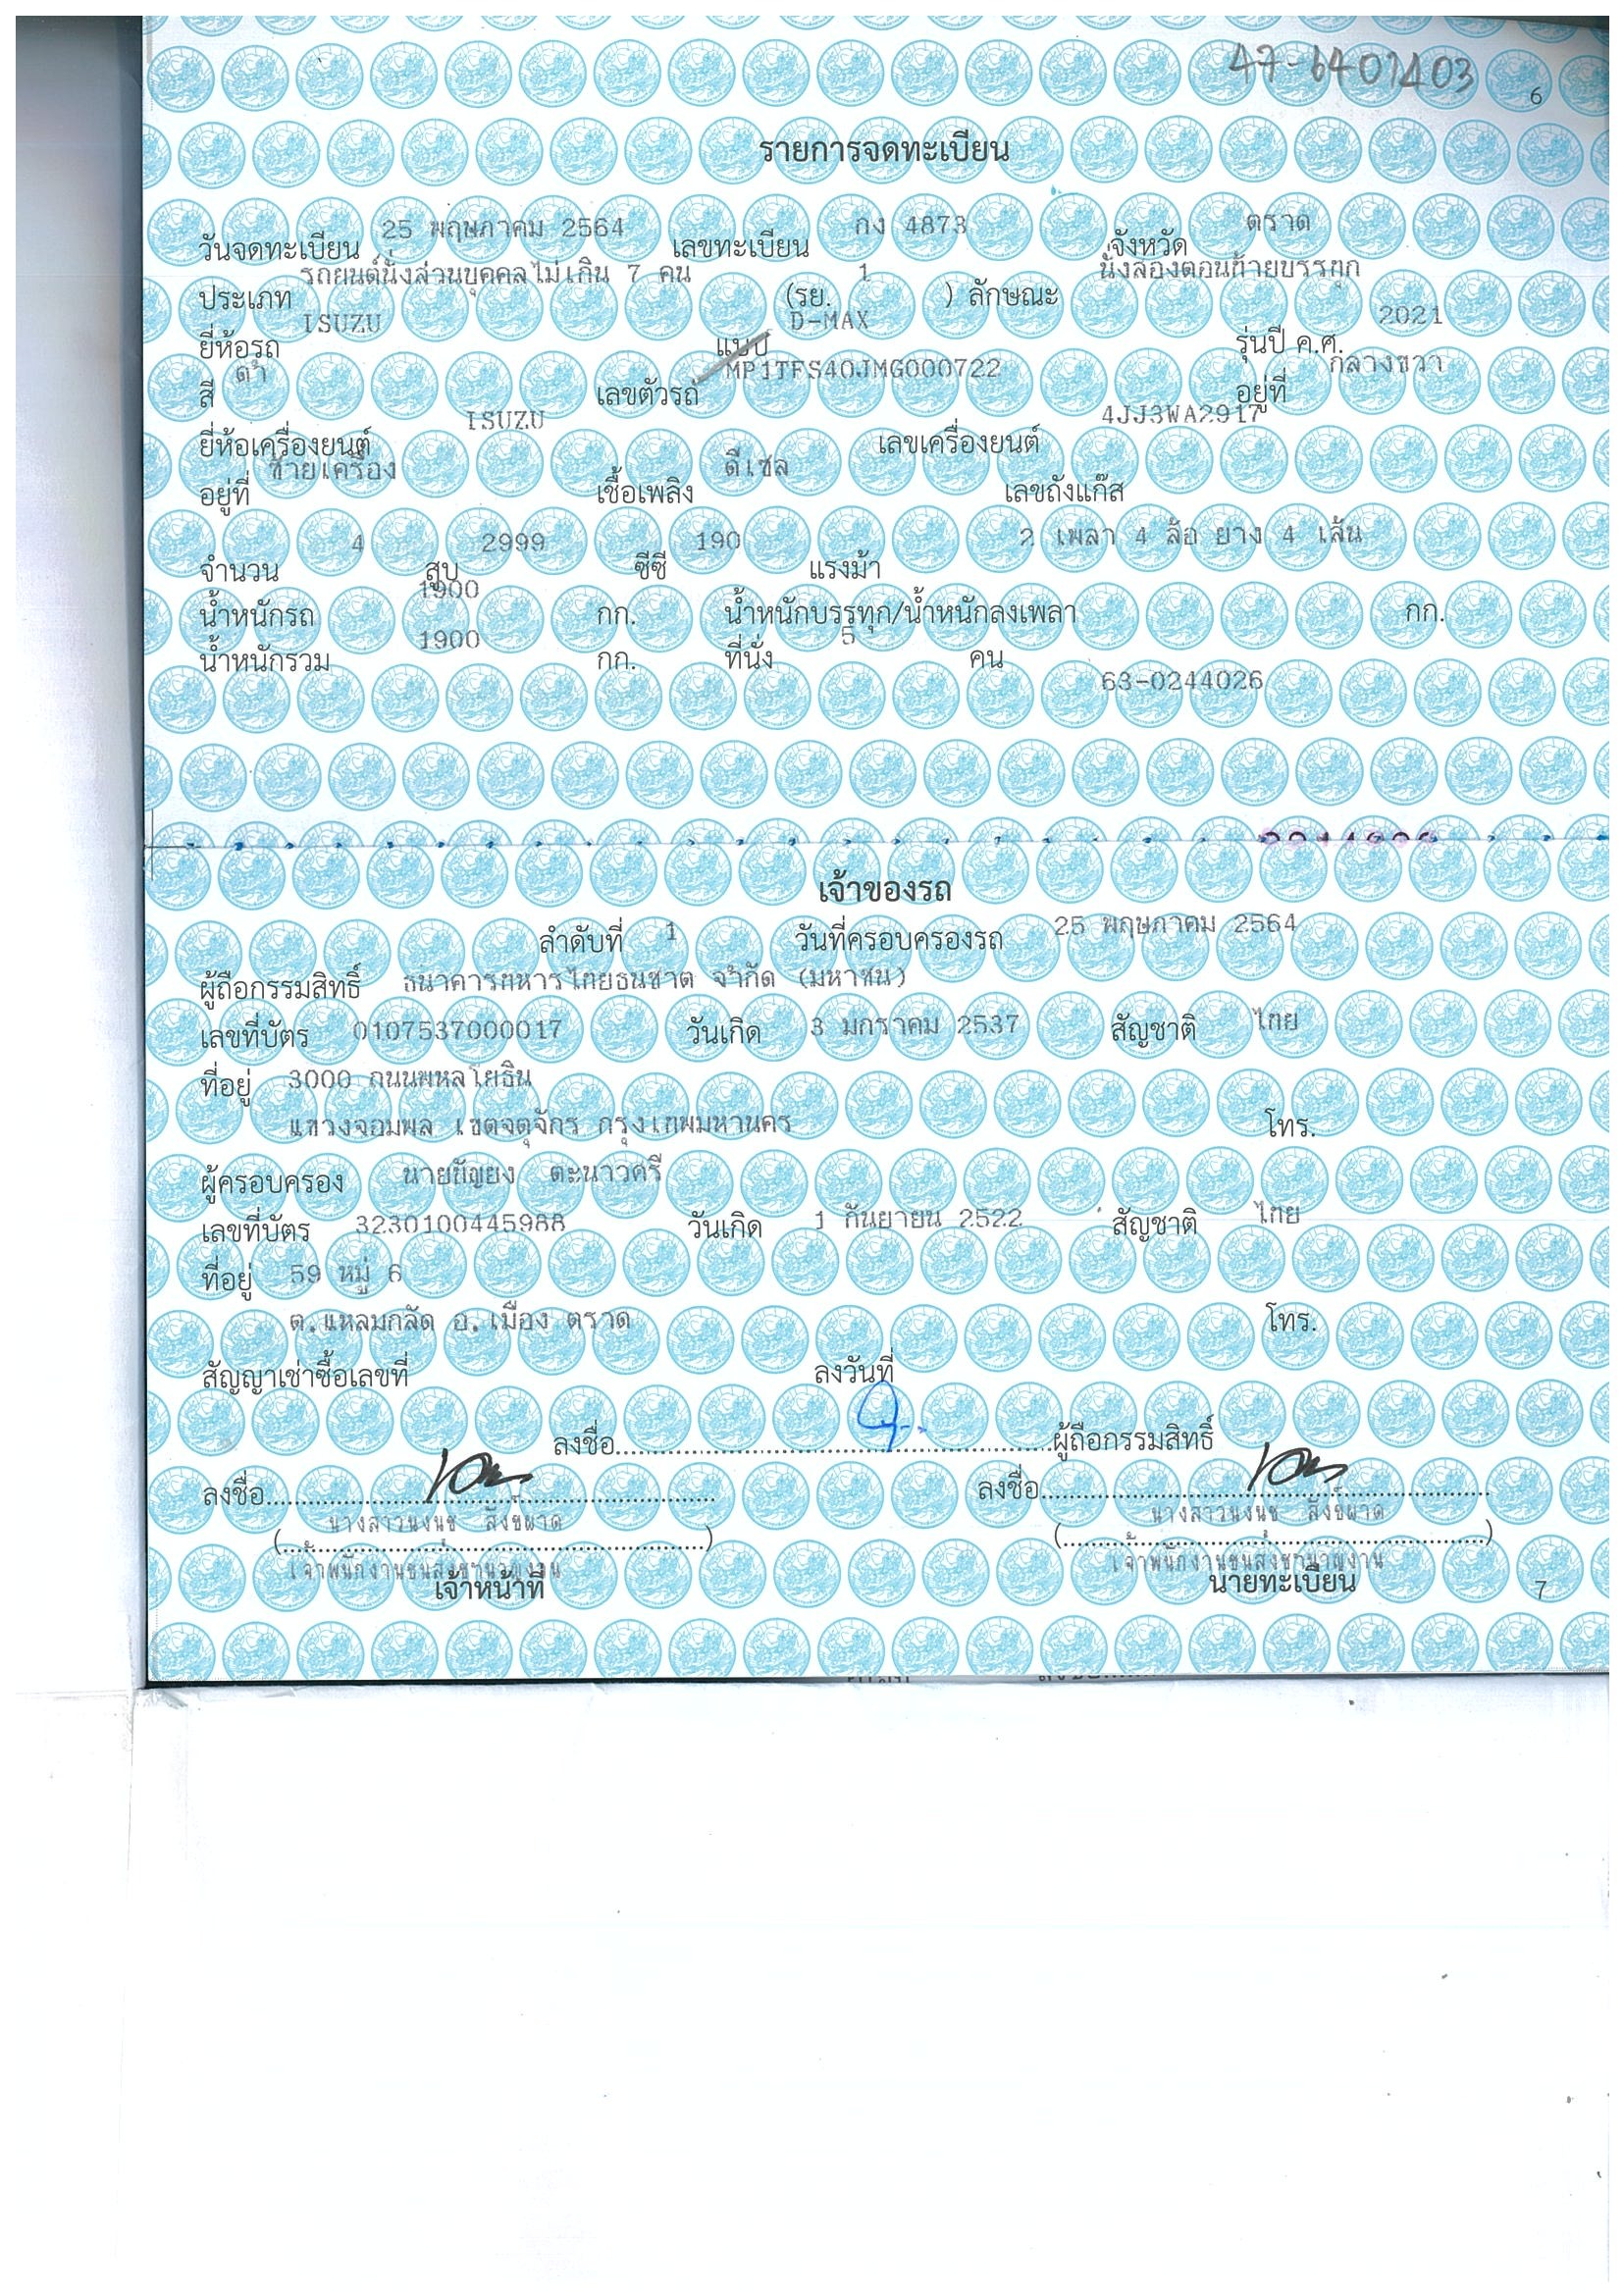 47-6401403
6
รายการจดทะเบียน
วันจดทะเบียน 25 พฤษภาคม 2564 เลขทะเบียน กง 4873 จังหวัด ตราด
ประเภท รถยนต์นั่งส่วนบุคคลไม่เกิน 7 คน (รย. 1 ) ลักษณะ นั่งสองตอนท้ายบรรทุก
ยี่ห้อรถ ISUZU แบบ D-MAX รุ่นปี ค.ศ. 2021
สี ดำ เลขตัวรถ MP1TFS40JMG000722 อยู่ที่ กลางขวา
ยี่ห้อเครื่องยนต์ ISUZU เลขเครื่องยนต์ 4JJ3WA2917
อยู่ที่ ซ้ายเครื่อง เชื้อเพลิง ดีเซล เลขถังแก๊ส
จำนวน 4 สูบ 2999 ซีซี 190 แรงม้า 2 เพลา 4 ล้อ ยาง 4 เส้น
น้ำหนักรถ 1900 กก. น้ำหนักบรรทุก/น้ำหนักลงเพลา กก.
น้ำหนักรวม 1900 กก. ที่นั่ง 5 คน
63-0244026
เจ้าของรถ
ลำดับที่ 1 วันที่ครอบครองรถ 25 พฤษภาคม 2564
ผู้ถือกรรมสิทธิ์ ธนาคารทหารไทยธนชาต จำกัด (มหาชน)
เลขที่บัตร 0107537000017 วันเกิด 3 มกราคม 2537 สัญชาติ ไทย
ที่อยู่ 3000 ถนนพหลโยธิน
แขวงจอมพล เขตจตุจักร กรุงเทพมหานคร โทร.
ผู้ครอบครอง ตะนาวศรี
เลขที่บัตร 3230100445988 วันเกิด 1 กันยายน 2522 สัญชาติ ไทย
ที่อยู่ 59 หมู่ 6
ต.แหลมกลัด อ.เมือง ตราด โทร.
สัญญาเช่าซื้อเลขที่ ลงวันที่
ลงชื่อ ผู้ถือกรรมสิทธิ์
ลงชื่อ ลงชื่อ
(นางสาวนงนุช) (นางสาวนงนุช)
เจ้าพนักงานขนส่งชำนาญงาน เจ้าพนักงานขนส่งชำนาญงาน
เจ้าหน้าที่ นายทะเบียน
7